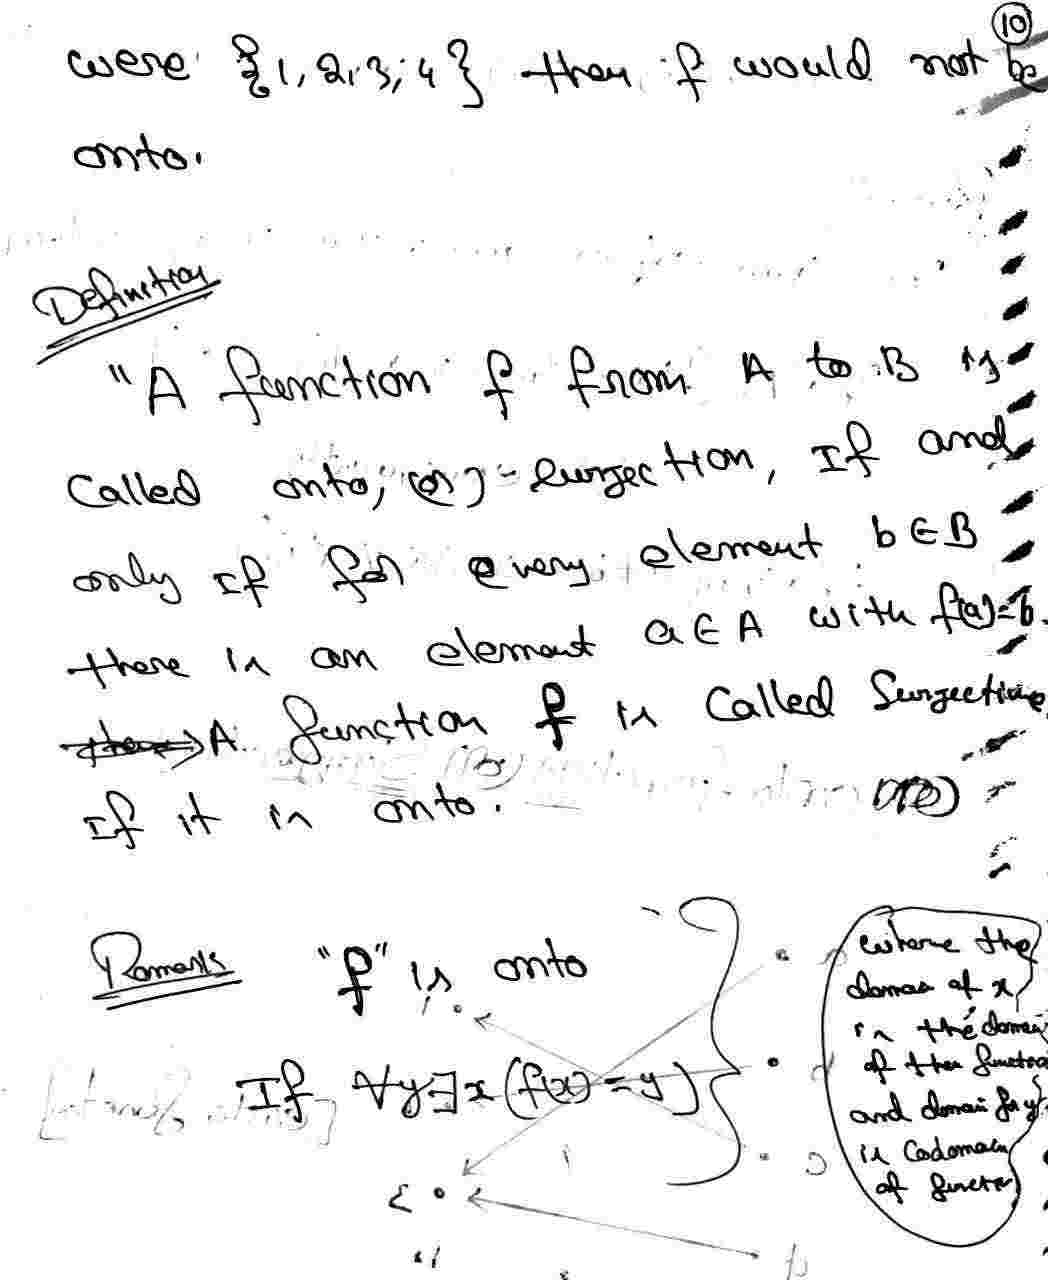 10
were {1, 2, 3, 4} then f would not be
onto.
Definition
"A function f from A to B is
Called onto, (or) - Surjection, If and
only If for every element b∈B
there is an element a∈A with f(a)=b.
A function f is called Surjective
If it is onto.
Remark "f" is onto
If ∀y∃x(f(x)=y)
where the
domain of x
is the domain
of the function
and domain for y
is Codomain
of function